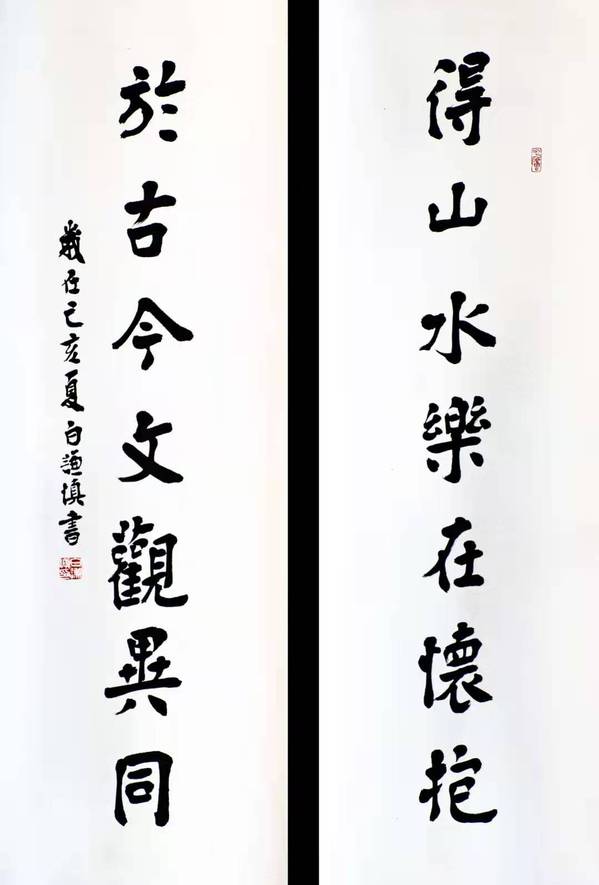 得山水樂在懷抱
於古今文觀異同
歲在己亥夏白謙慎書